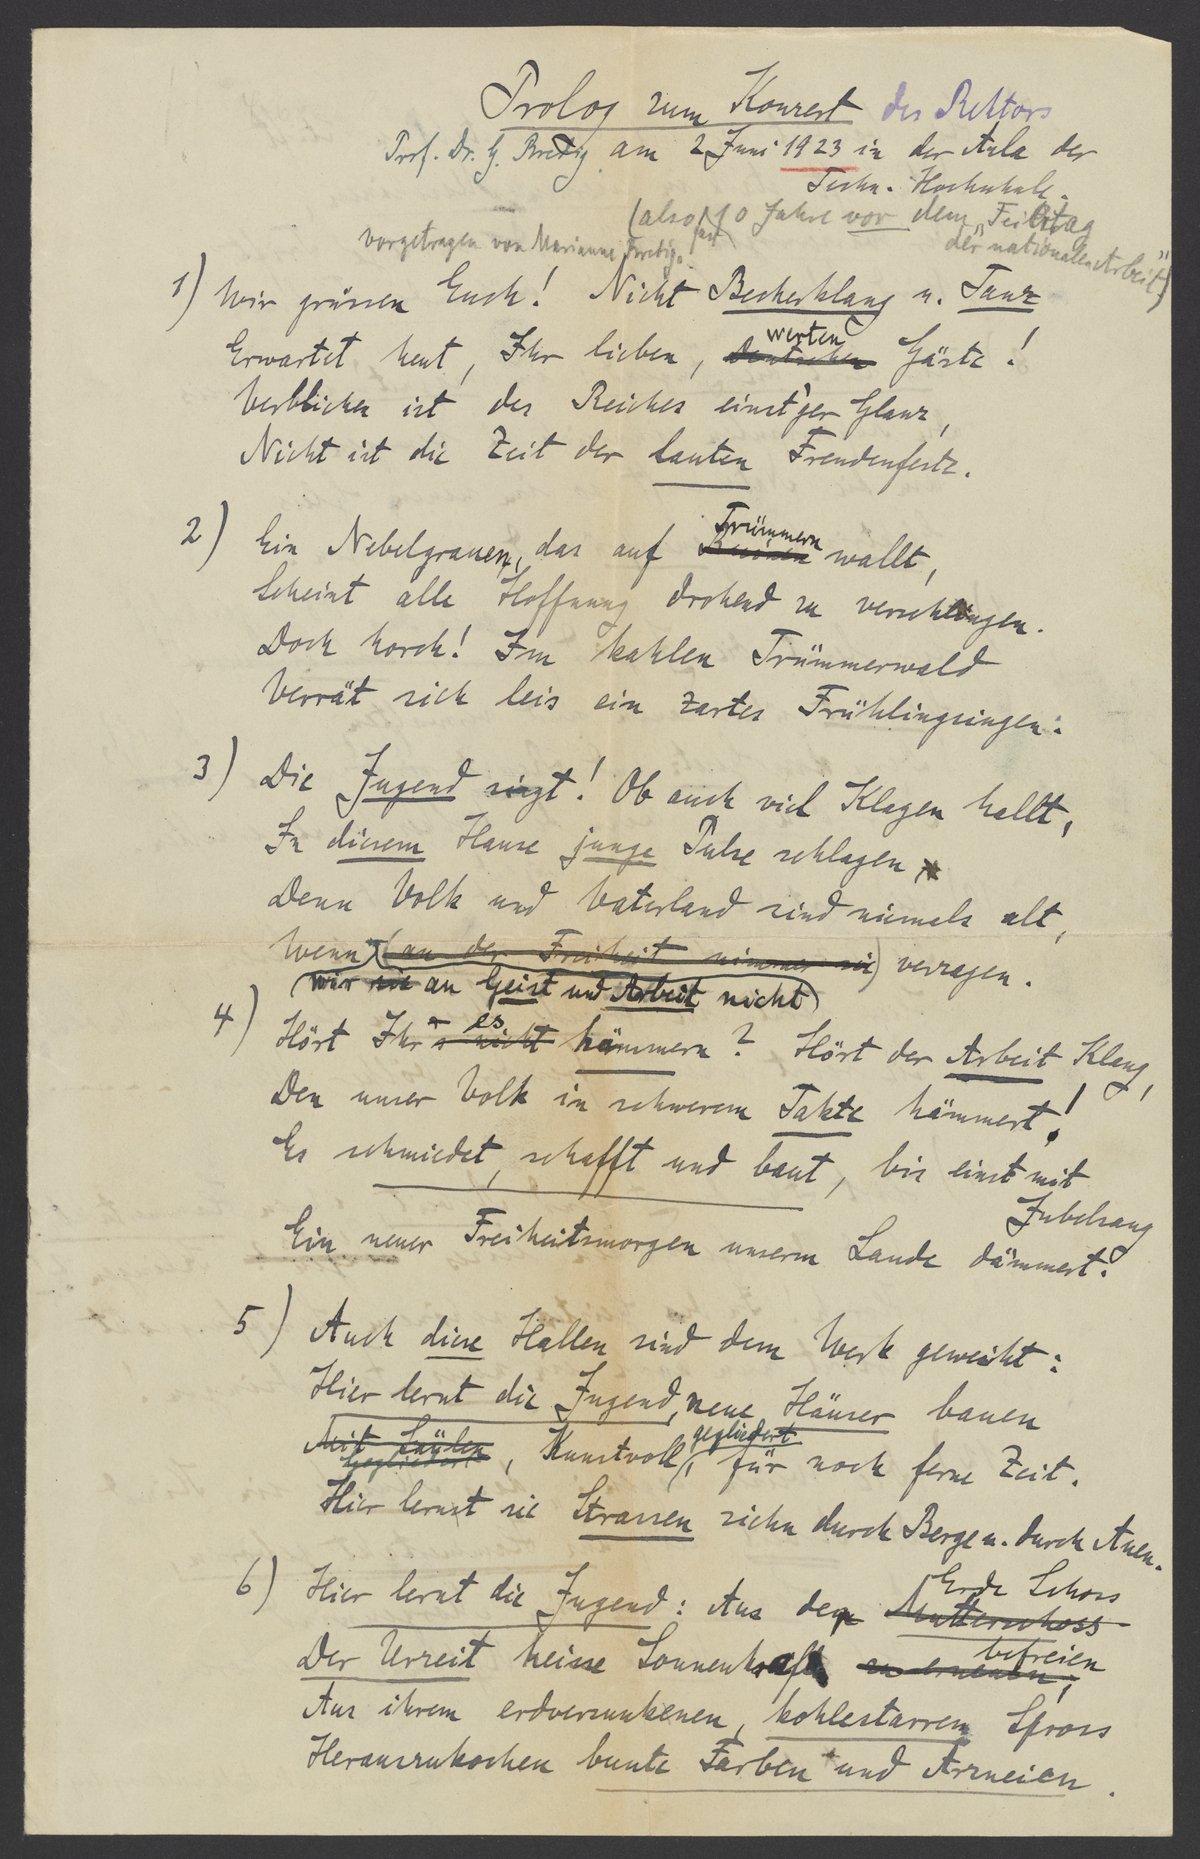 Prolog zum Konzert des Rektors
Prof. Dr. G. Bredig am 2 Juni 1923 in der Aula der
Techn. Hochschule.
(also fast 10 Jahre vor dem „Feiertag
der nationalen Arbeit")
vorgetragen von Marianne Bredig.
1) Wir grüssen Euch! Nicht Becherklang u. Tanz
werten
Erwartet heut, Ihr lieben, deutschen Gäste!
Verblichen ist des Reiches einst'ger Glanz,
Nicht ist die Zeit der lauten Freudenfeste.
Trümmern
2) Ein Nebelgrauen, das auf Ruinen wallt,
Scheint alle Hoffnung drohend zu verschlingen.
Doch horch! Im kahlen Trümmerwald
Verrät sich leis ein zartes Frühlingsingen:
3) Die Jugend singt! Ob auch viel Klagen hallt,
In diesem Hause junge Pulse schlagen
Denn Volk und Vaterland sind niemals alt,
Wenn (an der Freiheit nimmer sie) verzagen.
(wir sie an Geist und Arbeit nicht)
es
4) Hört Ihr's nicht hämmern? Hört der Arbeit Klang,
Den unser Volk in schwerem Takte hämmert!
Es schmiedet, schafft und baut, bis einst mit
Jubelsang
Ein neuer Freiheitsmorgen unserm Lande dämmert.
5) Auch diese Hallen sind dem Werk geweiht:
Hier lernt die Jugend, neue Häuser bauen
gegliedert
Mit Säulen, Kunstvoll, für noch ferne Zeit.
Gegliedert
Hier lernt sie Strassen ziehn durch Berge u. durch Auen.
Erde Schoss
6) Hier lernt die Jugend: Aus der Mutterschoss
befreien
Der Urzeit heisse Sonnenkraft zu erneuen,
Aus ihrem erdversunkenen, kohlestarren Spross
Herauszukochen bunte Farben und Arzneien.